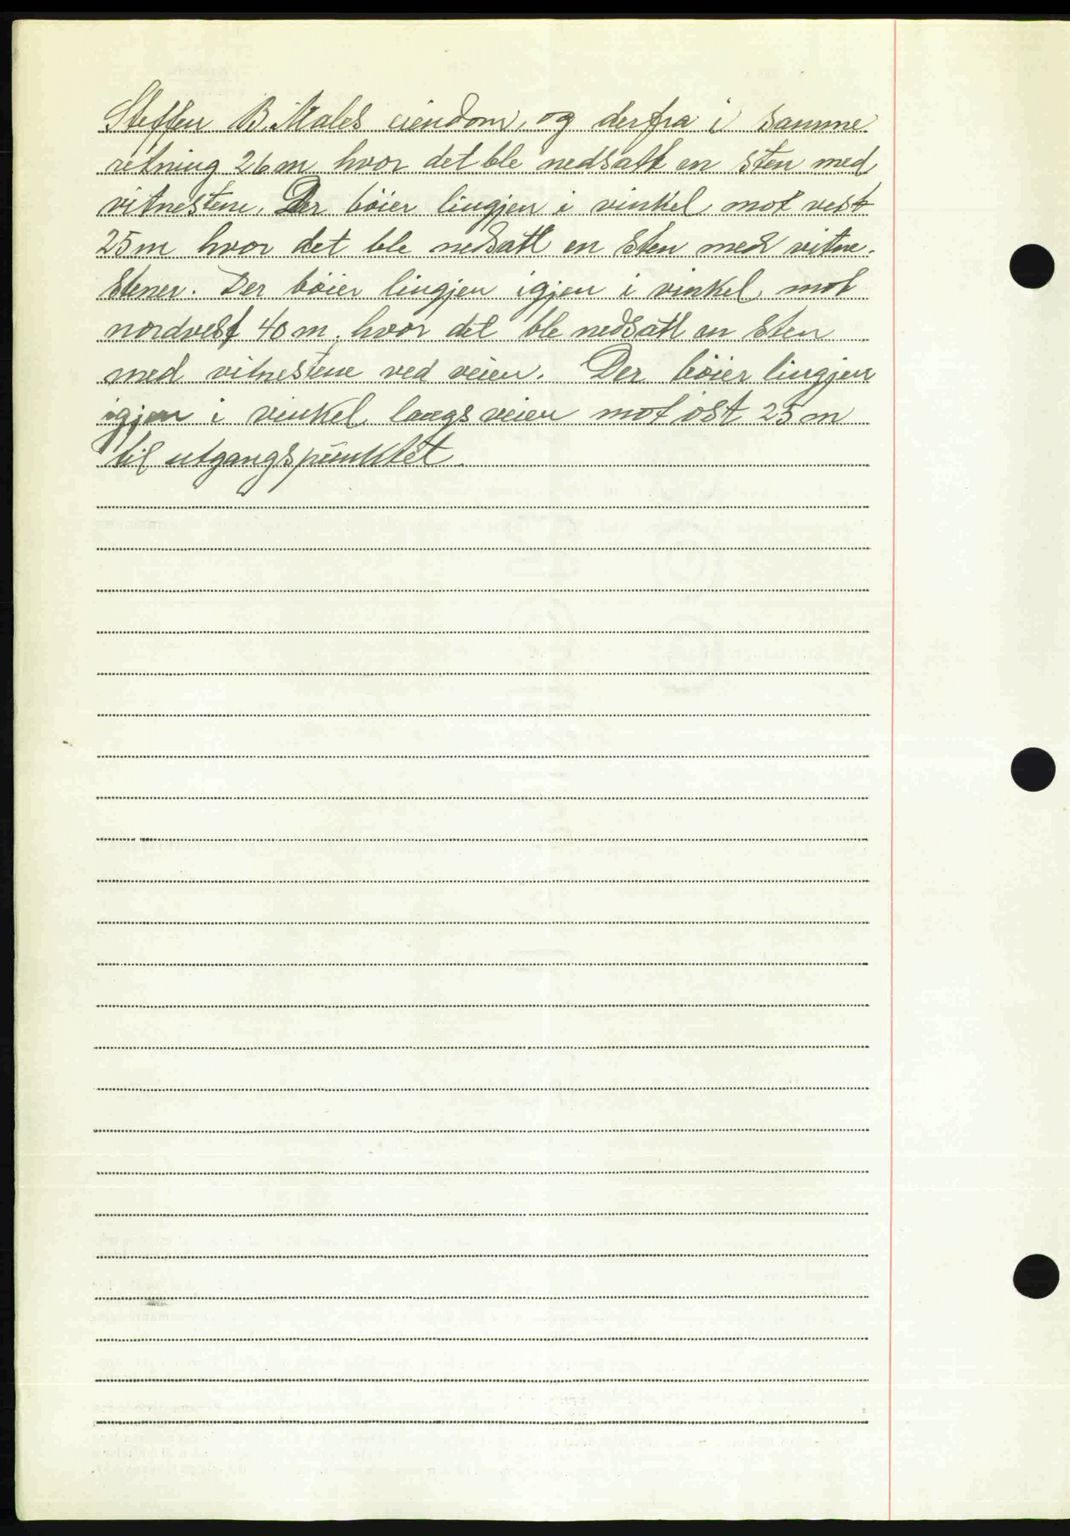 Steffen B. Males eiendom, og derfra i samme
retning 26 m hvor det ble nedsatt en sten med
vitnestene. Der böier lingjen i vinkel mot vest
25 m hvor det ble nedsatt en sten med vitne-
stener. Der böier lingjen igjen i vinkel mot
nordvest 40 m, hvor det ble nedsatt en sten
med vitnestene ved veien. Der böier lingjen
igjen i vinkel langs veien mot öst 25 m
til utgangspunktet.